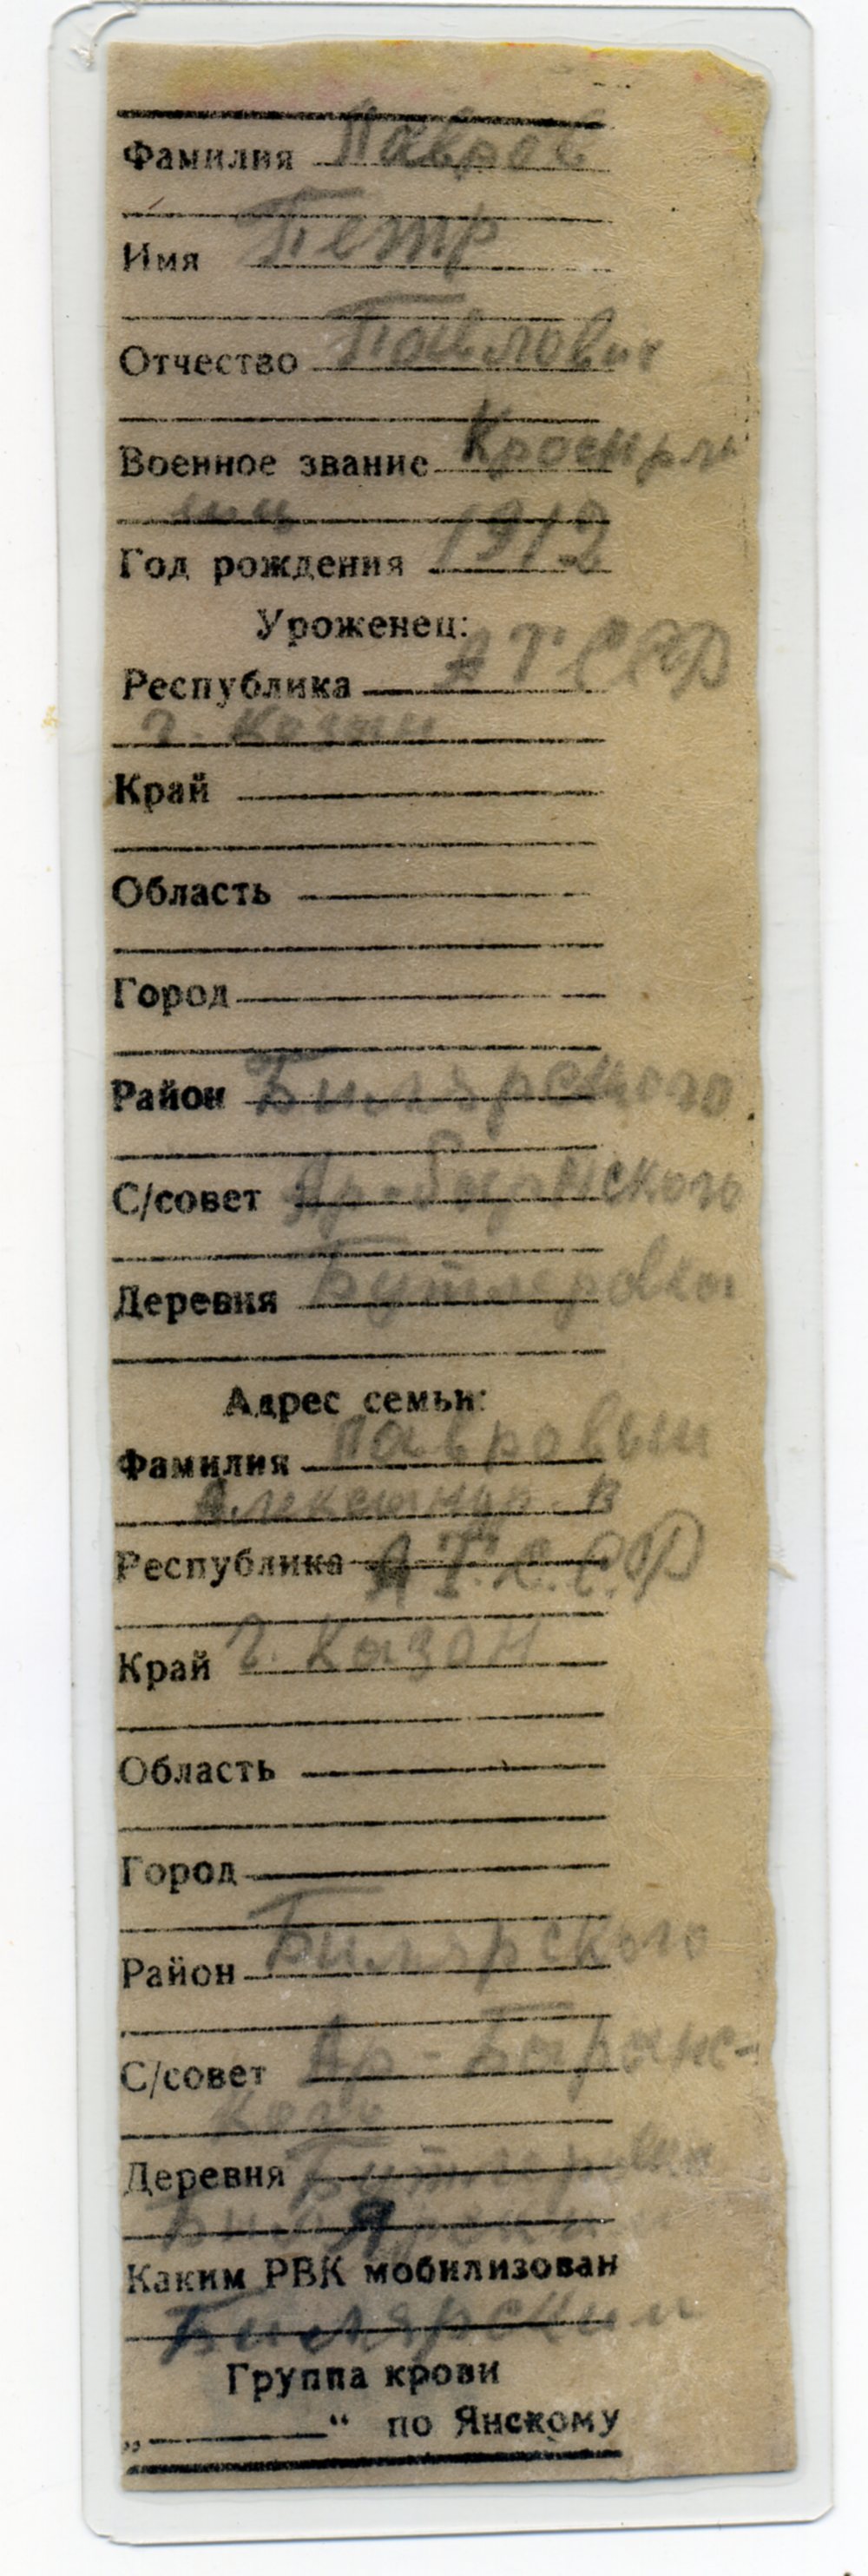 Фамилия Лавров
Имя Петр
Отчество Павлович
Военное звание Кроснрм
еиц
Год рождения 1912
Уроженец:
Республика АТССР
г. Казан
Край
Область
Город
Район Билярского
С/совет Ар-Баранского
Деревня Бутлеровка
Адрес семьи:
Фамилия Лавровым
В
Республика АТ.С.С.Р
Край г. Казан
Область
Город
Район Билярского
С/совет Ар-Баранс-
кого
Деревня
Каким РВК мобилизован
Билярским
Группа крови
„ “ по Янскому